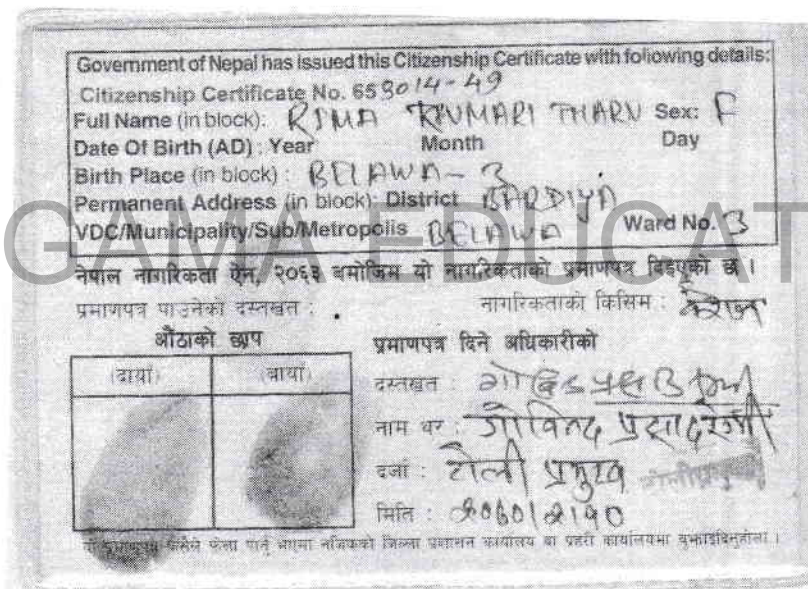 Government of Nepal has issued this Citizenship Certificate with following details:
Citizenship Certificate No. 653014-49
Full Name (in block): RIMA KUMARI THARU Sex: F
Date Of Birth (AD) : Year Month Day
Birth Place (in block) : BELAWA - 3
Permanent Address (in block): District BARDIYA
VDC/Municipality/Sub/Metropolis BELAWA Ward No. 3
GAMA EDUCAT
नेपाल नागरिकता ऐन, २०६३ बमोजिम यो नागरिकताको प्रमाणपत्र दिइएको छ ।
प्रमाणपत्र पाउनेको दस्तखत : नागरिकताको किसिम : वंशज
औंठाको छाप
प्रमाणपत्र दिने अधिकारीको
(दायाँ) (बायाँ)
दस्तखत :
नाम थर : गोविन्द प्रसाद रेग्मी
दर्जा : टोली प्रमुख
मिति :
यो प्रमाणपत्र कसैले फेला पार्नु भएमा नजिकको जिल्ला प्रशासन कार्यालय वा प्रहरी कार्यालयमा बुझाइदिनुहोला ।